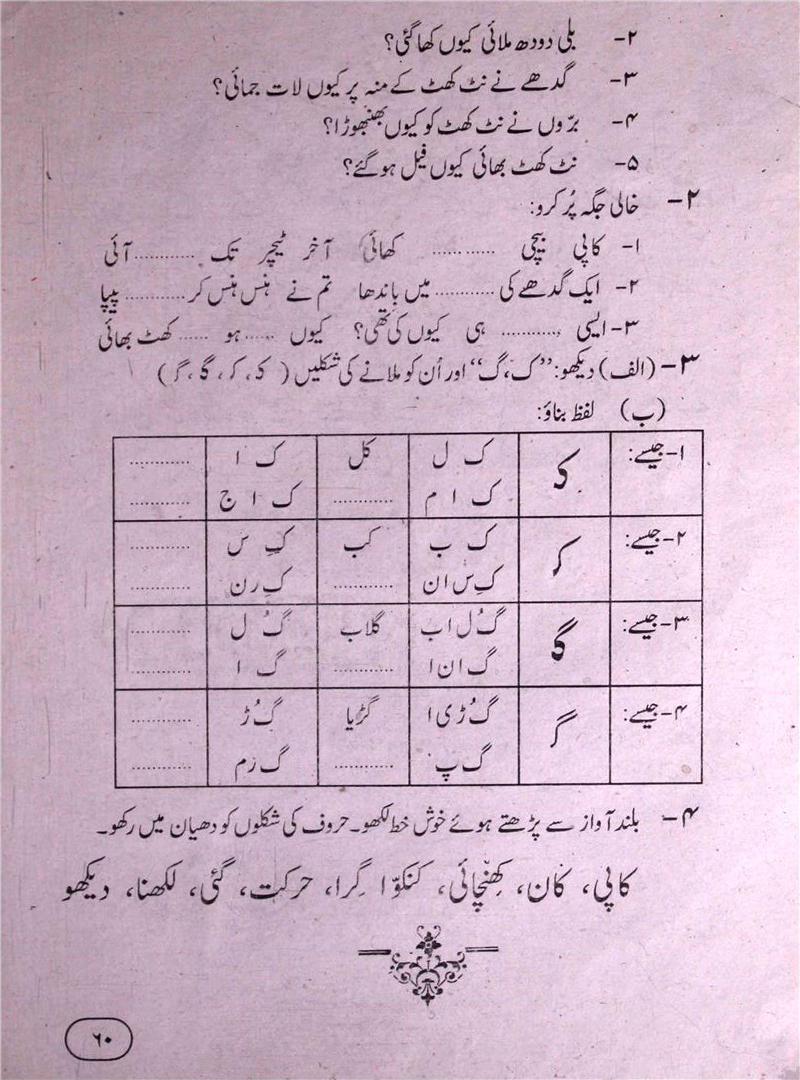 ۲- بلی دودھ ملائی کیوں کھا گئی؟
۳- گدھے نے نٹ کھٹ کے منہ پر کیوں لات جمائی؟
۴- برّوں نے نٹ کھٹ کو کیوں بھنبھوڑا؟
۵- نٹ کھٹ بھائی کیوں فیل ہو گئے؟
۲- خالی جگہ پُر کرو:
۱- کاپی بیچی ............ کھائی آخر ٹیچر تک ............ آئی
۲- ایک گدھے کی ............ میں باندھا تم نے ہنس ہنس کر ............ پیپا
۳- ایسی ............ ہی کیوں کی تھی؟ کیوں ...... ہو ...... کھٹ بھائی
۳- (الف) دیکھو: ”ک، گ“ اور اُن کو ملانے کی شکلیں (کـ، کـ، گـ، گـ)
(ب) لفظ بناؤ:
۱- جیسے: کـ ک ل کل ک ا ............
ک ا م ............ ک ا ج ............
۲- جیسے: کـ ک ب کب کِ س ............
کِ س ا ن ............ کِ ر ن ............
۳- جیسے: گـ گُ ل ا ب گلاب گُ ل ............
گ ا ن ا ............ گ ا ............
۴- جیسے: گـ گُ ڑ ی ا گڑیا گُ ڑ ............
گ پ ............ گ ر م ............
۴- بلند آواز سے پڑھتے ہوئے خوش خط لکھو۔ حروف کی شکلوں کو دھیان میں رکھو۔
کاپی، کان، کھِنچائی، کنکوّا گِرا، حرکت، گئی، لکھنا، دیکھو
۶۰